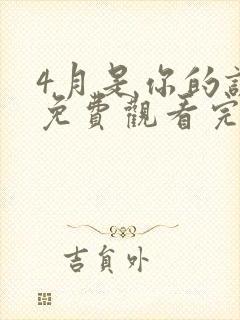 4月是你的
免費觀看完
吉負外